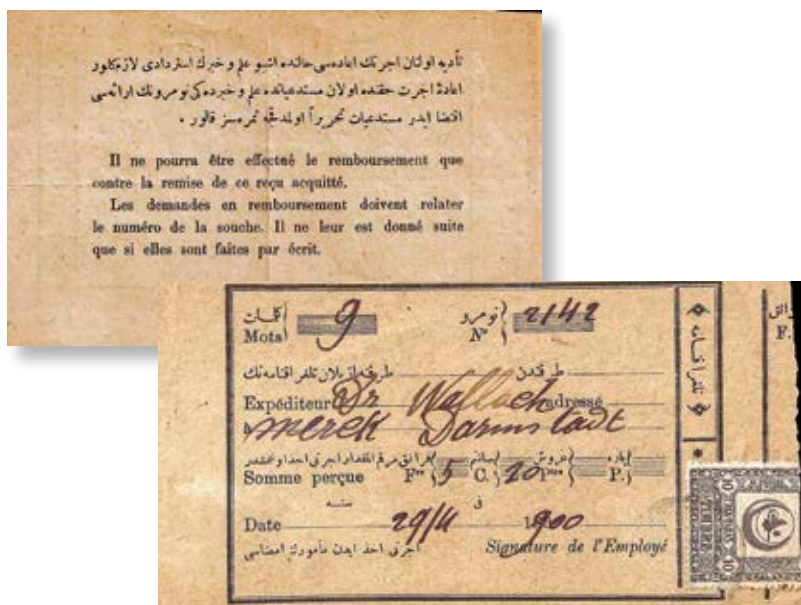 تأدیه اولنان اجرتك اعاده‌سی حالنده اشبو علم و خبرك استردادی لازمكلور
اعادۀ اجرت حقنده اولان مستدعیانده علم و خبرده‌كی نومرونك ارائه‌سی
اقتضا ایدر مستدعیات تحریراً اولمدقجه ثمره‌سز قالور .
Il ne pourra être effectué le remboursement que
contre la remise de ce reçu acquitté.
Les demandes en remboursement doivent relater
le numéro de la souche. Il ne leur est donné suite
que si elles sont faites par écrit.
كلمات نومرو
Mots 9 N° 2142
طرفندن
Expéditeur Dr Wallach adressé
à Merck Darmstadt
Somme perçue F. 5 C. 20 P. P.
سنه فی
Date 29/11 1900
اجرتی اخذ ایدن مأمورك امضاسی Signature de l'Employé
تلغرافنامه
F.
10 10